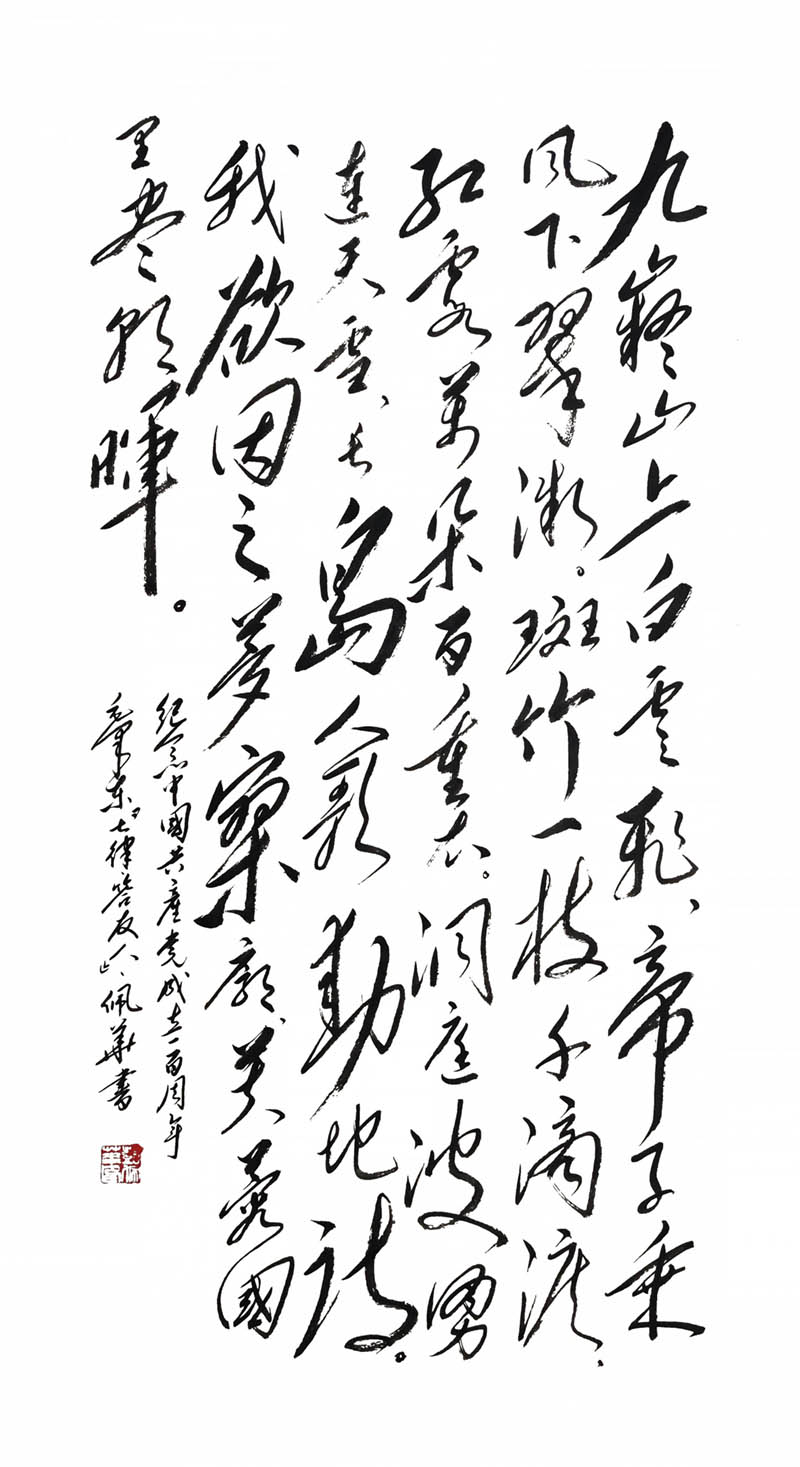 九嶷山上白雲飛、帝子乘
风下翠微。斑竹一枝千滴淚、
红霞萬朵百重衣。洞庭波湧
連天雪、长島人歌動地诗。
我欲因之夢寥廓芙蓉國
里尽朝暉。
纪念中國共產党成立一百周年
毛澤东七律答友人、佩華書